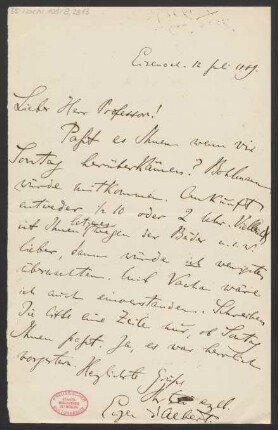 Eisenach. 12 Juli 1889.
Lieber Herr Professor!
Paßt es Ihnen wenn wir
Sonntag herüberkämen?
würde mitkommen. Ankunft
entweder ½ 10 oder 2 Uhr. Vielleicht
ist Ihnen letzteres wegen der Bäder u.s.w.
lieber, dann würde ich vorziehen
übernachten. Mit Vacha wäre
ich auch einverstanden. Schreiben
Sie bitte eine Zeile mir, ob Sonntag
Ihnen paßt. Ja, es war herrlich
vorgestern. Herzlichste Grüße
Ihr
Eugen d'Albert.